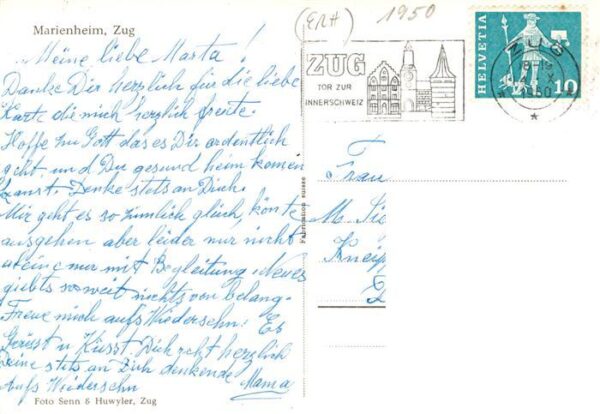 Marienheim, Zug
Meine liebe Marta!
Danke Dir herzlich für die liebe
Karte die mich herzlich freute.
Hoffe zu Gott das es Dir ordentlich
geht. und Du gesund heim komen
kanst. Denke stets an Dich.
Mir geht es so zimlich glüch, könte
ausgehen aber leider nur nicht
aleine nur mit Begleitung. Neues
giebts soweit nichts von belang.
Freue mich aufs Wiedersehn! Es
Grüsst u Küsst Dich recht herzlich
Deine stets an Dich denkende
Aufs Wiedersehn Mama
Foto Senn & Huwyler, Zug
Fabrication suisse
(ERH) 1950
ZUG
TOR ZUR
INNERSCHWEIZ
HELVETIA
10
ZUG
18-19
X
1950
Frau
M. Sie
Kneip